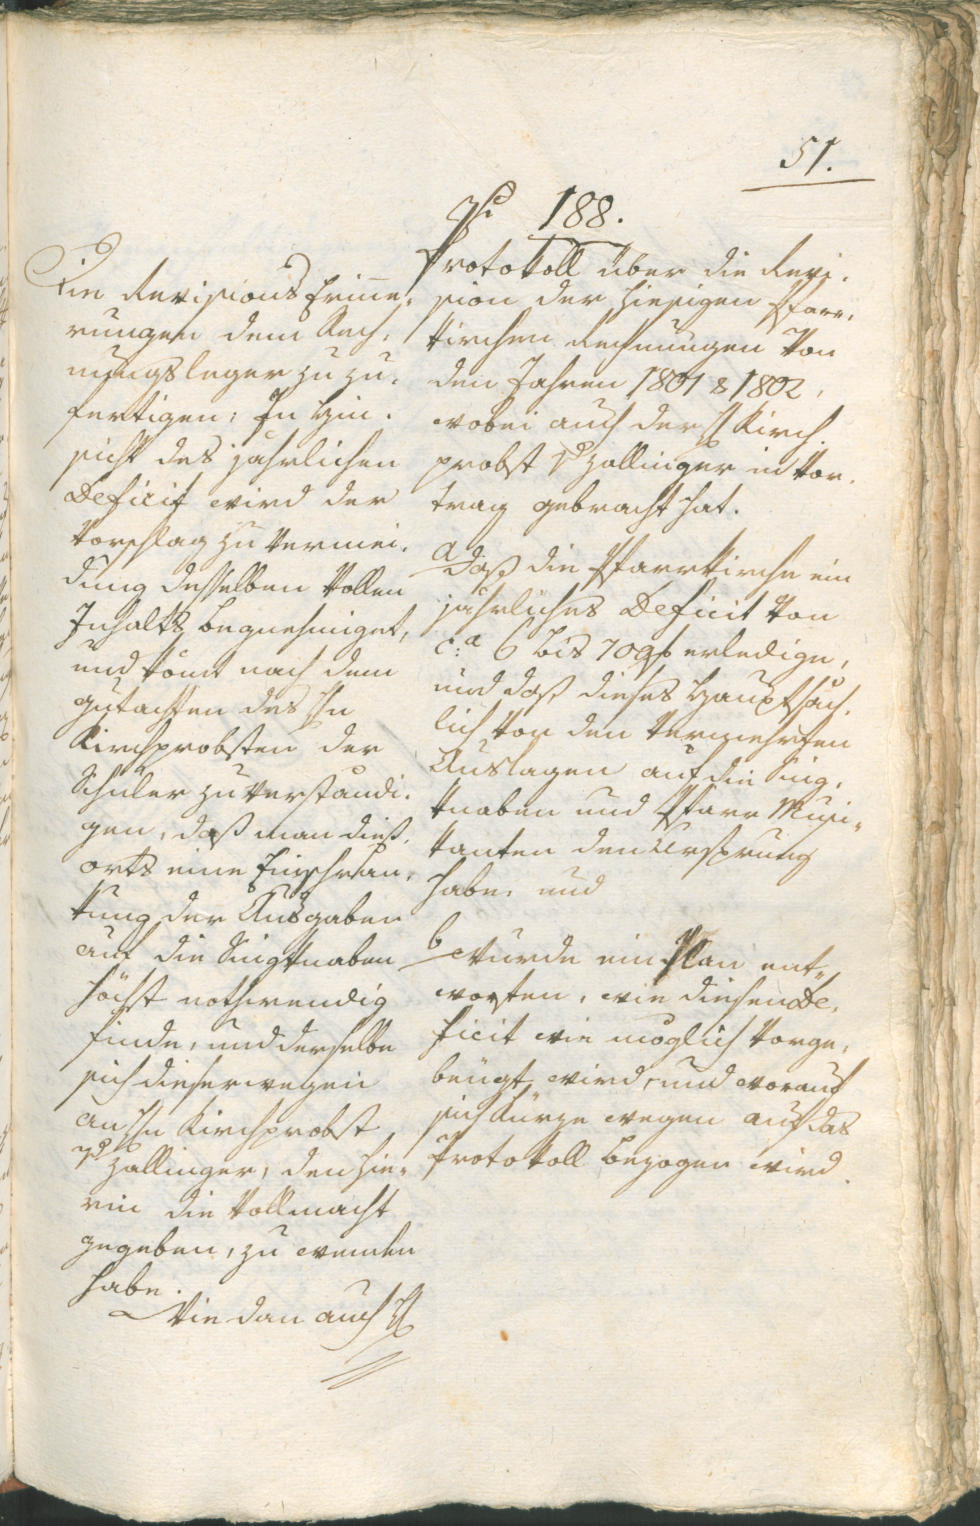 51.
No 188.
Protokoll über die Revi-
sion der hiesigen Pfarr-
kirchen Rechnungen von
den Jahren 1801 & 1802,
wobei auch der H Kirch-
probst v Zallinger in Vor-
trag gebracht hat.
a daß die Pfarrkirche ein
jährliches Deficit von
c:a 6 bis 700 f erledige,
und daß dieses hauptsäch-
lich von den vermehrten
Auslagen auf die Sing-
knaben und Pfarr Musi-
kanten den Ursprung
habe, und
b wurde ein Plan ent-
worfen, wie diesen De-
ficit wie möglich vorge-
beugt wird, und worauf
sich Kürze wegen auf das
Protokoll bezogen wird.
Die Revisions Erinne-
rungen dem Rech-
nungsleger zu zu-
fertigen: In Hin-
sicht des jährlichen
Deficit wird der
Vorschlag zu Vermei-
dung desselben vollen
Inhalts begnehmiget,
und dem nach dem
Gutachten des Hn
Kirchprobsten der
Schuler zu verständi-
gen, daß man dieß-
orts eine Einschrän-
kung der Ausgaben
auf die Singknaben
höchst nothwendig
finde, und derselbe
sich dieserwegen
an Hn Kirchprobst
v Zallinger, den hie-
rin die Vollmacht
gegeben, zu wenden
habe.
Wie dan auch H